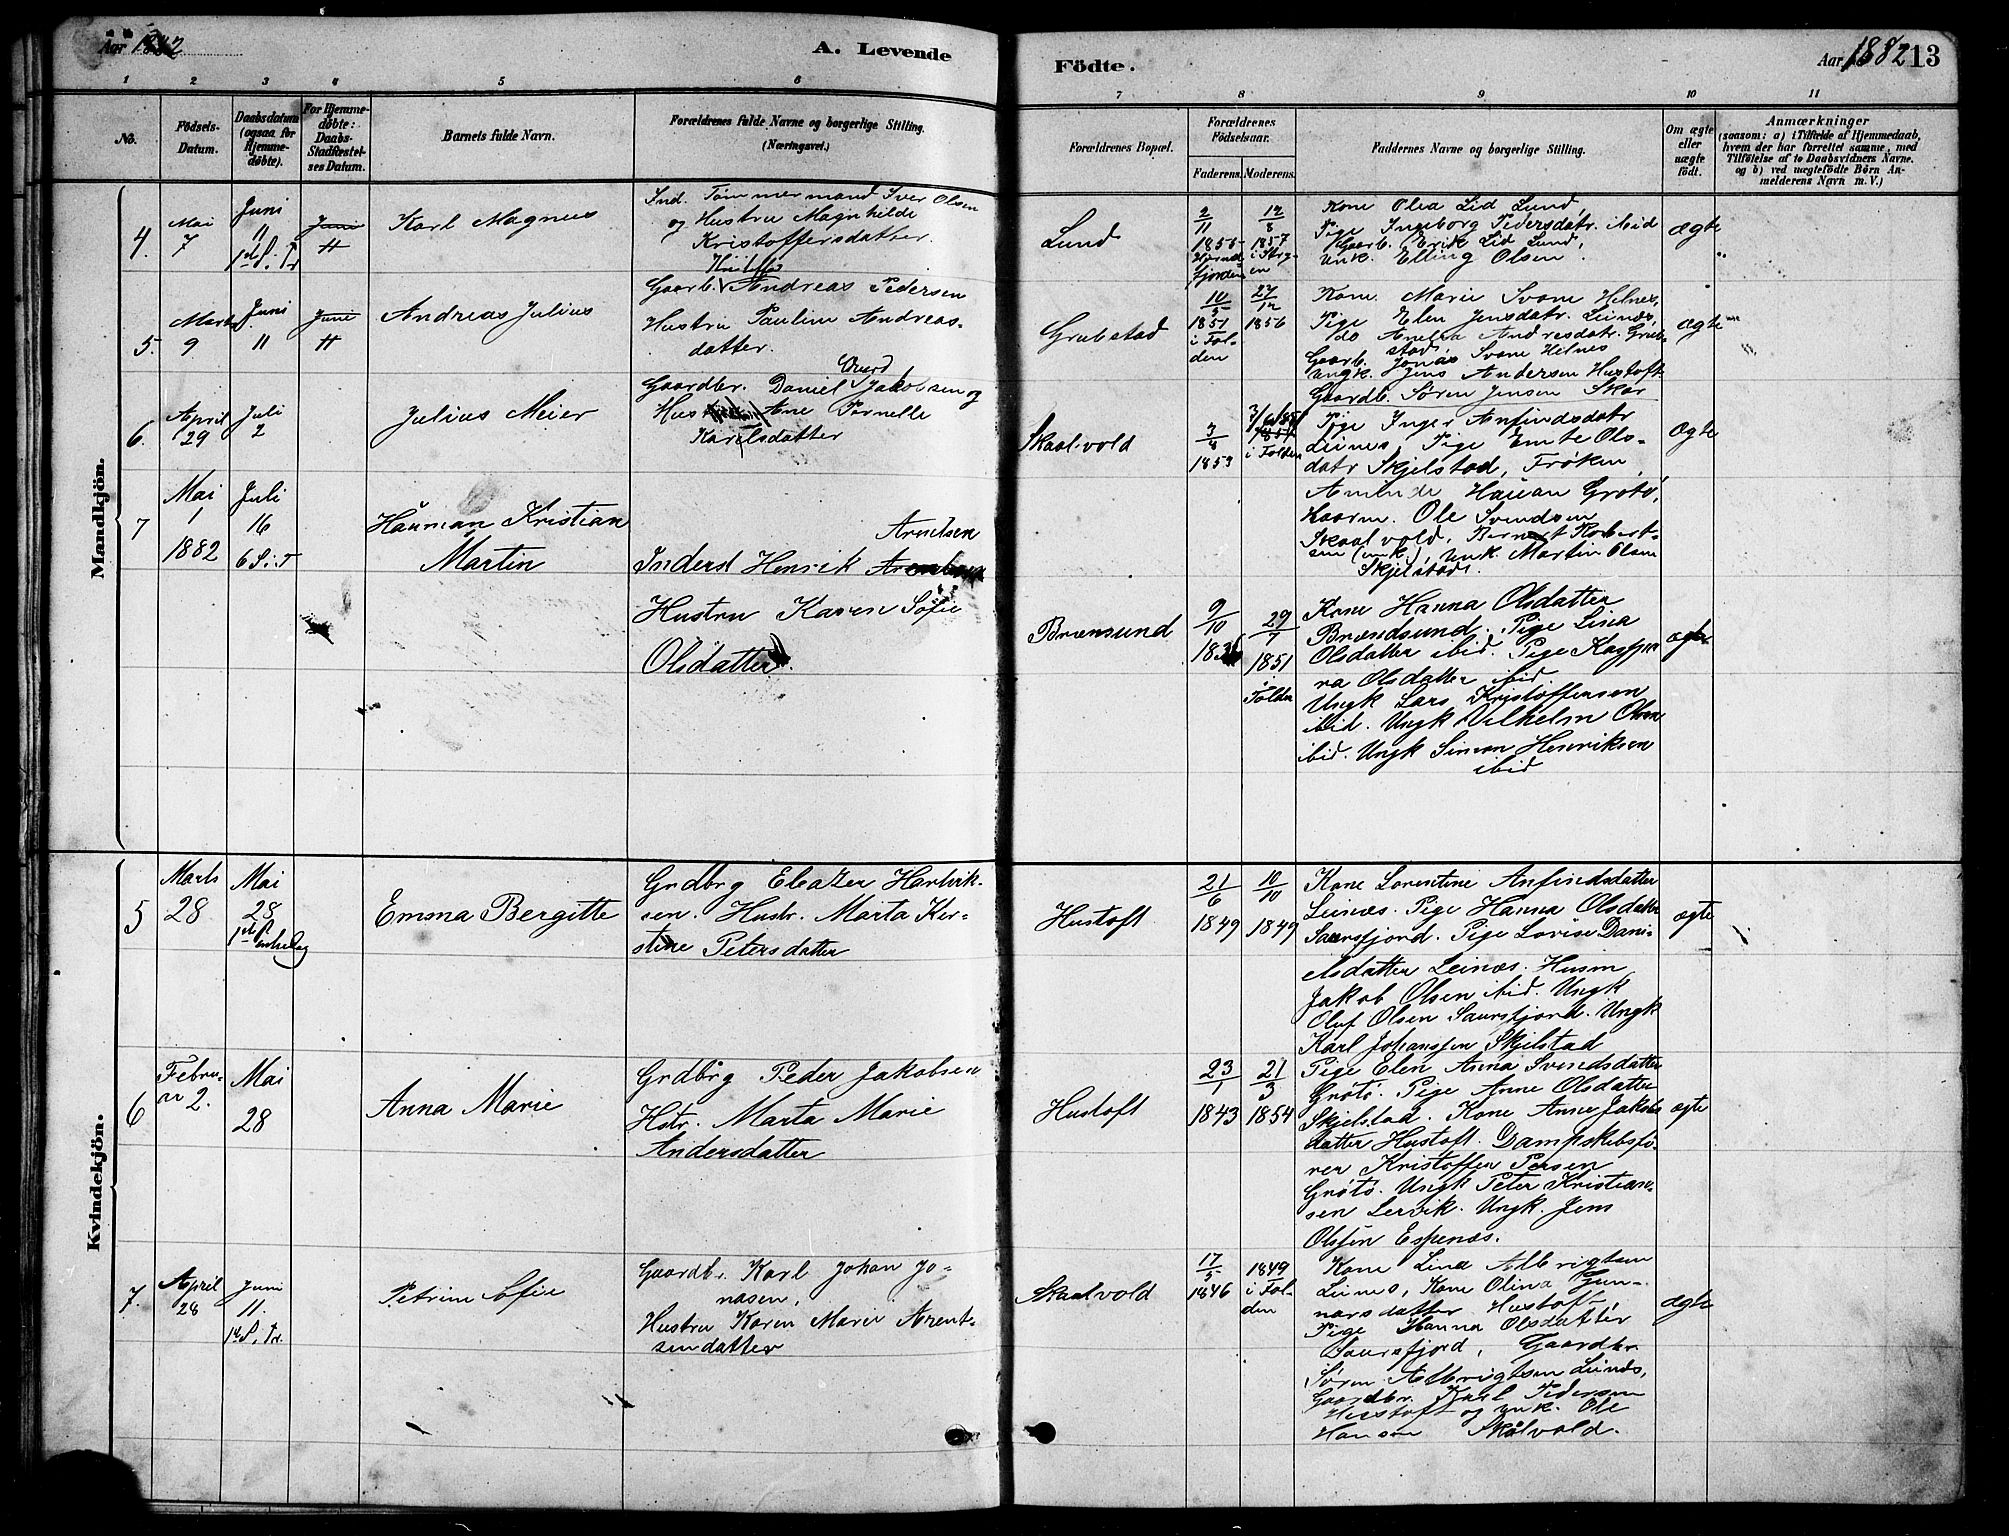 Aar 1882
A. Levende
Födte.
Aar 1882 13
1 2 3 4 5 6 7 8 9 10 11
No.
Fødsels-
Datum.
Daabsdatum
(ogsaa for
Hjemme-
døbte).
For Hjemme-
døbte:
Daabs-
Stadfæstel-
ses Datum.
Barnets fulde Navn.
Forældrenes fulde Navne og borgerlige Stilling.
(Næringsvei.)
Forældrenes Bopæl.
Forældrenes
Fødselsaar.
Faderens. Moderens.
Faddernes Navne og borgerlige Stilling.
Om ægte
eller
uægte
født.
Anmærkninger
(saasom: a) i Tilfælde af Hjemmedaab,
hvem der har forrettet samme, med
Tilföielse af to Daabsvidners Navne.
og b) ved uægtefødte Børn An-
melderens Navn m. V.)
Mandkjön.
4.
Mai
7
Juni
11
1ste S. Tr
Juni
11
Karl Magnus
Ind. Tømmermand Iver Olsen
og Hustru Magnhilde
Kristoffersdatter.
Lund
2/11
1856
12/8
1857
i Stryn
Kone Olea Lid Lund,
Pige Ingeborg Pedersdatr. ibid
Gaarb. Erik Lid Lund,
Unk. Elling Olsen.
Ægte
5.
Marts
9
Juni
11
Juni
11
Andreas Julius
Gaarb. Andreas Pedersen
Hustru Pauline Andreas-
datter.
Grubstad
10/5
1851
i Fol-
den
27/12
1856
Kone Marie Svane Helnes,
Pige Elen Jensdatr. Leines,
do Anetta Andreasdatr. Grub-
stad,
Gaarb. Jonas Svane Helnes
Ungk. Jens Andersen Hustoft
Gaardb. Søren Jensen Skar
Ægte
6.
April
29
Juli
2
Julius Meier
Gaardbr. Daniel Jakobsen og
Hus Ane Pernelle
Karlsdatter
Skaalvold
3/4
1853
i Folden
Pige Inger Anfindsdatr
Leines, Pige Emte Ols-
datr Skjelstad, Frøken
Aminde Hauan Grøtø,
Kaarm. Ole Svendsen
Skaalvold, Bernt Robert-
sen (unk.), Unk. Martin Olsen
Skjelstad.
Ægte
7
Mai
1
1882
Juli
16
6 S. i. T
Hauman Kristian
Martin
Arntsen
Inderst Henrik
Hustru Karen Sofie
Olsdatter.
Brænsund
9/10
29/7
1851
Folden
Kone Hanna Olsdatter
Brændsund. Pige Lina
Olsdatter ibid. Pige Kaspa
ra Olsdatter ibid
Ungk Lars Kristoffersen
ibid. Ungk Vilhelm Olsen
ibid. Ungk Simon Henriksen
ibid
ægte
Kvindekjön.
5
Marts
28
Mai
28
1ste Pinsedag
Emma Bergitte
Grdbrg Eleazer Hartvik-
sen. Hustr. Marta Ker-
stine Petersdatter
Hustoft
21/6
1849
10/10
1849
Kone Lorentine Anfindsdatter
Leinæs. Pige Hanna Olsdatr
Saursfjord. Pige Lovise Dani-
elsdatter Leinæs. Husm
Jakob Olsen ibid. Ungk
Oluf Olsen Saursfjord. Ungk
Karl Johanssen Skjelstad
ægte
6
Febru-
ar 2.
Mai
28
Anna Marie
Grdbrg Peder Jakobsen
Hstr. Marta Marie
Andersdatter
Hustoft
23/1
1843
21/3
1854
Pige Elen Anna Svendsdatter
Grøtø. Pige Anne Olsdatter
Skjelstad. Kone Anne Jakobs
datter Hustoft. Dampskibsfø-
rer Kristoffer Persen
Grøtø. Ungk Peter Kristian-
sen Lervik. Ungk. Jens
Olssen Espenæs.
ægte
7.
April
28
Juni
11.
1ste S. Tr.
Petrine Sofie
Gaardbr. Karl Johan Jo-
nasen,
Hustru Karen Marie Arent-
sendatter
Skaalvold
17/5
1846
1849
i Fol-
den
Kone Lina Albrigtsen
Leines, Kone Olina Gun-
narsdatter Hustoft
Pige Hanna Olsdatter
Saursfjord, Gaardbr.
Søren Albrigtsen Leines,
Gaardbr. Karl Pedersen
Hustoft og unk. Ole
Hansen Skålvold.
ægte